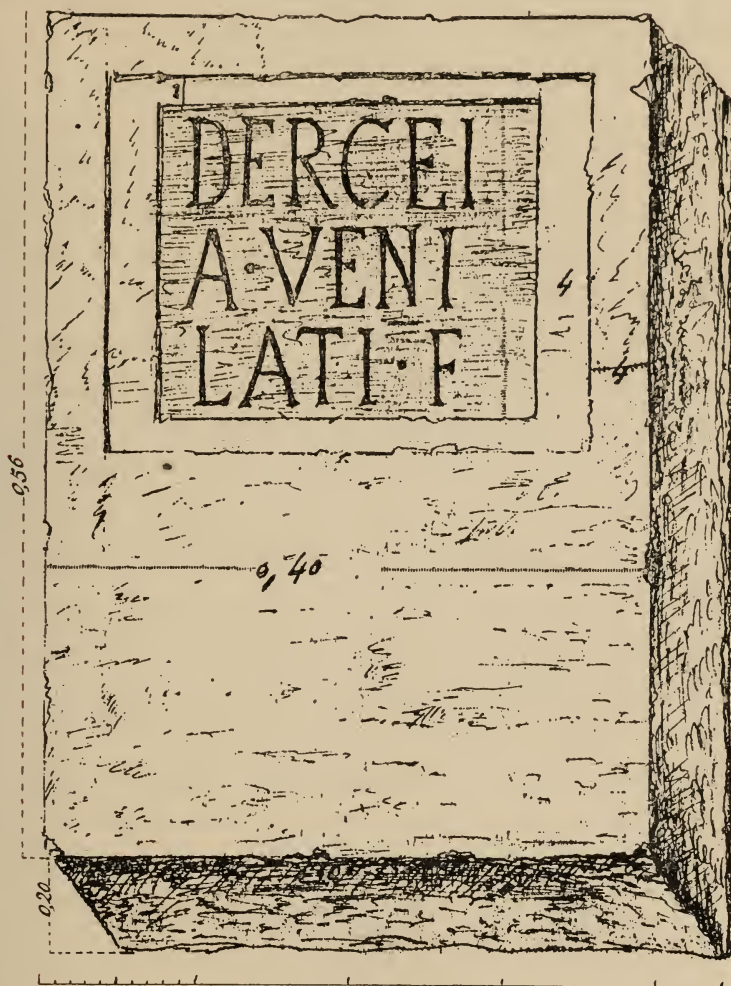 DERCEI
A·VENI
LATI·F
4
4
0,56
0,40
0,20